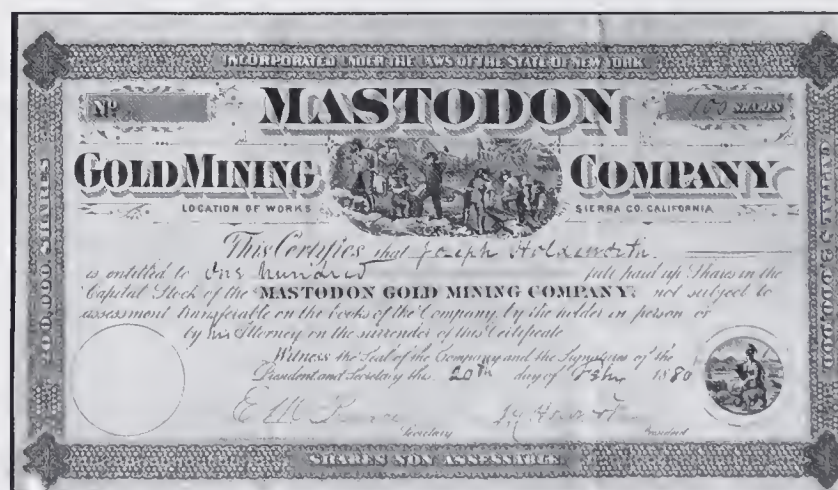 INCORPORATED UNDER THE LAWS OF THE STATE OF NEW YORK
Nº
100 SHARES
MASTODON
GOLD MINING COMPANY
LOCATION OF WORKS SIERRA CO. CALIFORNIA
200,000 SHARES
This Certifies that Joseph Holdsworth
is entitled to One hundred full paid up Shares in the
Capital Stock of the MASTODON GOLD MINING COMPANY, not subject to
assessment transferable on the books of the Company, by the holder in person or
by his Attorney on the surrender of this Certificate
Witness the Seal of the Company and the Signatures of the
President and Secretary this 20th day of 1880
Secretary President
SHARES NON ASSESSABLE